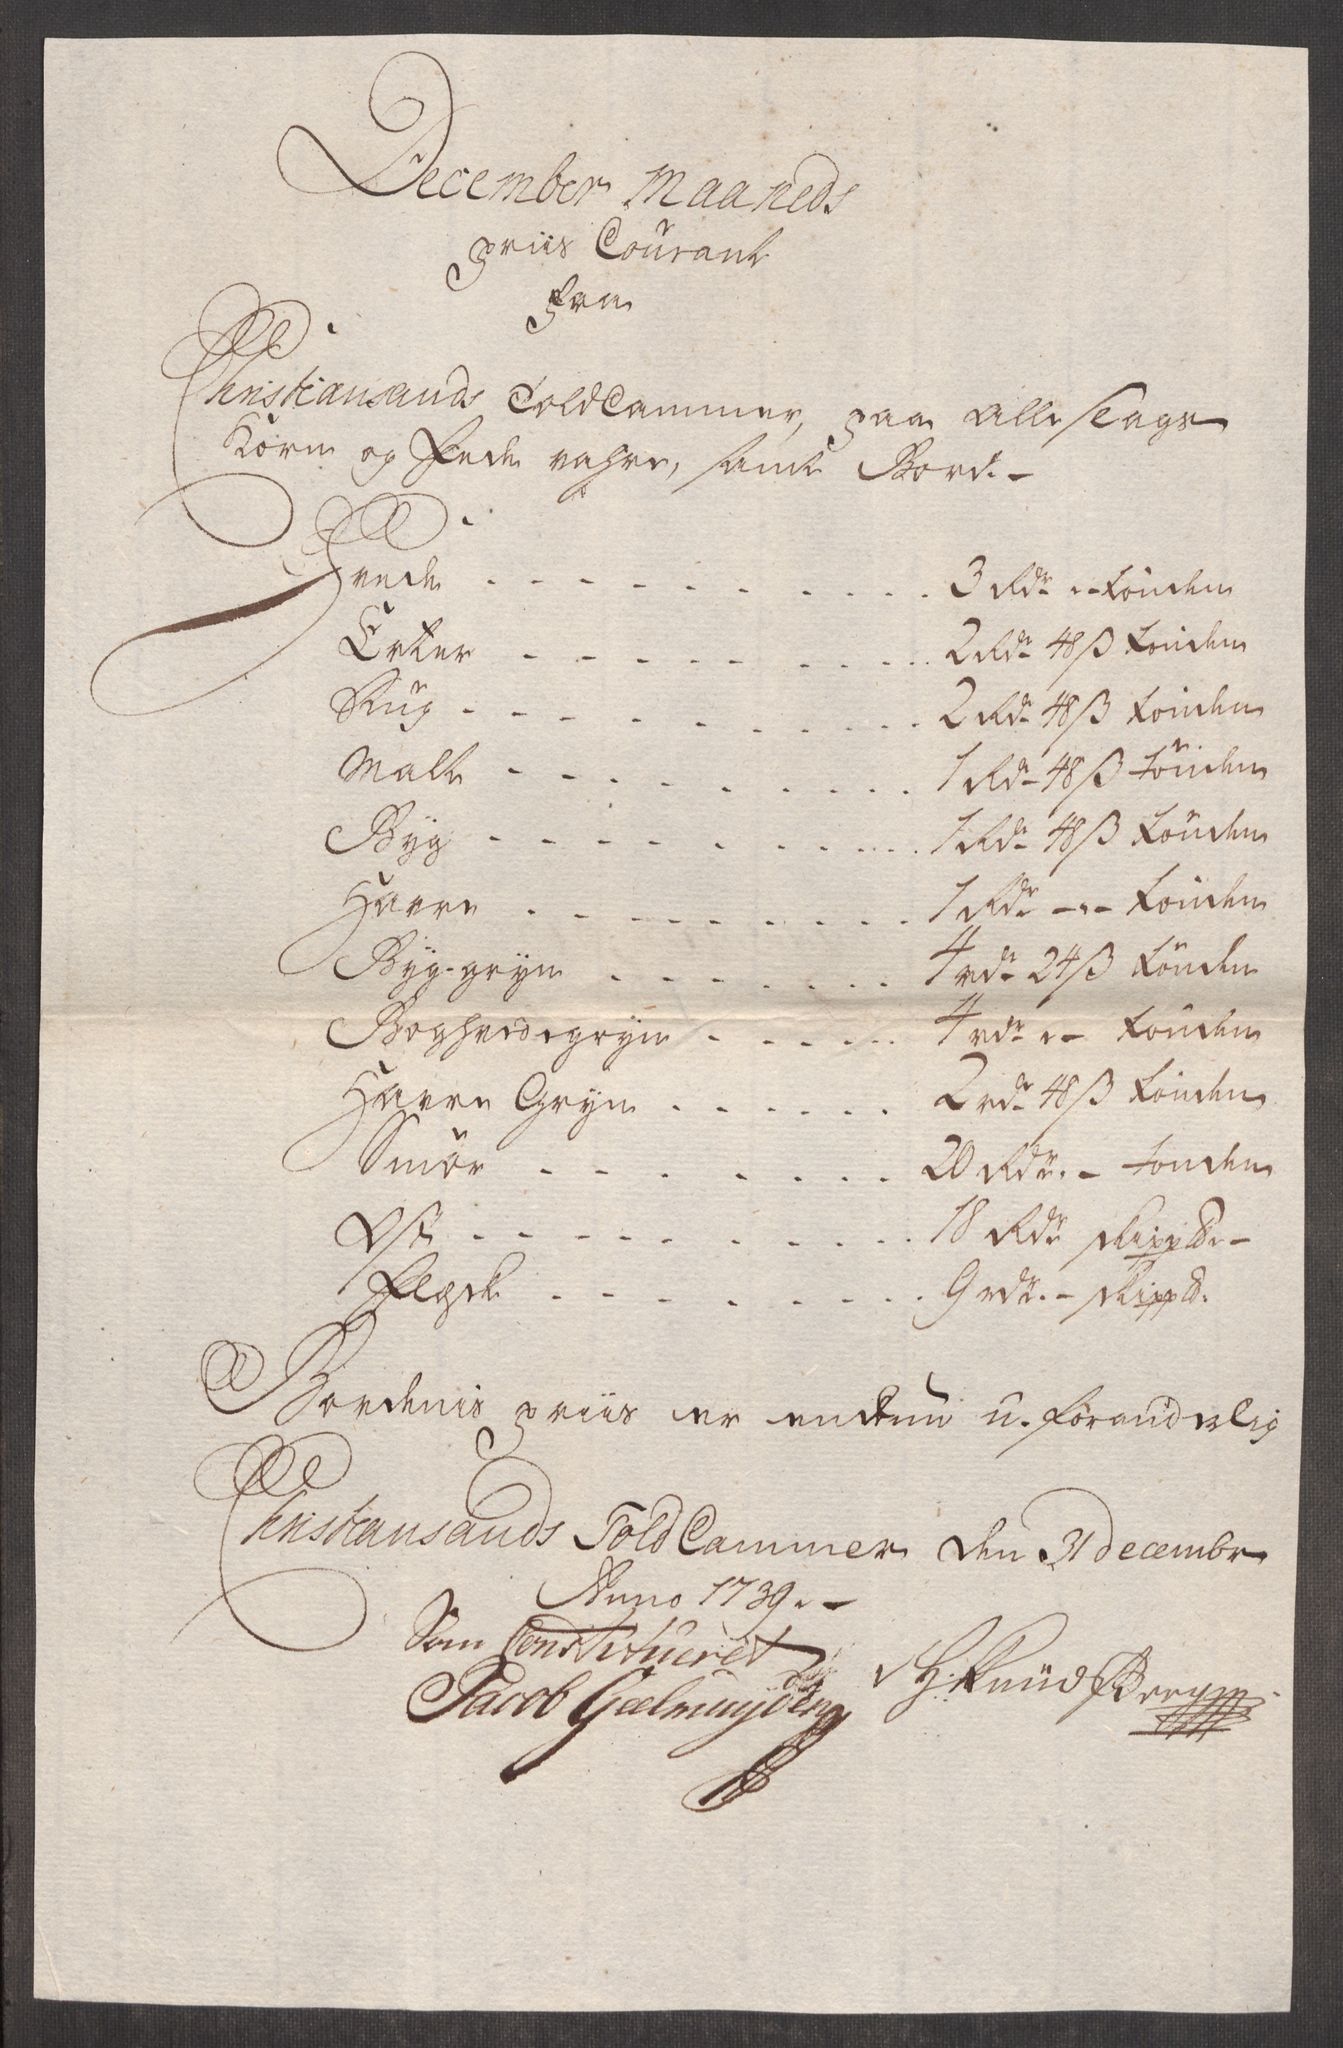 December Maaneds
priis Coürant
fra
Christiansands ToldCammer, paa alle slags
Korn og fede vahre, samt Bord. -
Hvede - - - - - - - - - 3 Rdr. - tönden
Erter - - - - - - - - - 2 Rdr 48 ß tönden
Rüg - - - - - - - - - 2 Rdr 48 ß tönden
Malt - - - - - - - - - 1 Rdr 48 ß tönden
Byg - - - - - - - - - 1 Rdr 48 ß tönden
Havre - - - - - - - - - 1 Rdr - - - tönden
Byg-gryn - - - - - - - 4 rdr 24 ß tönden
Boghvedegryn - - - - - - 4 rdr - - tönden
Havre Gryn - - - - - - 2 rdr 48 ß tönden
Smör - - - - - - - - 20 Rdr. - tonden
Ost - - - - - - - - - 18 Rdr skipp℔. -
Flesk - - - - - - - - 9 rdr. - skipp℔.
Bordenis priis er endnu u-foranderlig
Christiansands ToldCammer den 31 decembr
Anno 1739. -
Som Constitueret
Jacob Geelmuyden H: Knüd